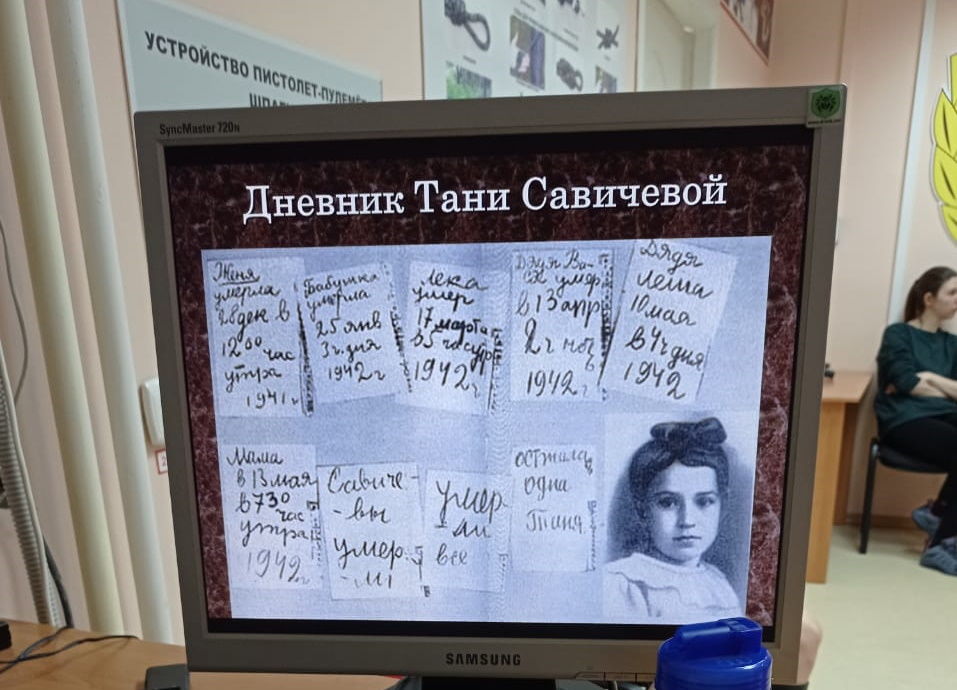 УСТРОЙСТВО ПИСТОЛЕТ-ПУЛЕМЁ
ШПАГ
SyncMaster 720N
Дневник Тани Савичевой
Женя
умерла
28 дек в
12 00 час
утра
1941 г
Бабушка
умерла
25 янв
3 ч. дня
1942 г
Лека
умер
17 марта
в 5 час утр
1942 г
Дядя Ва-
ся умер
в 13 апр
2 ч ноч
1942 г
Дядя
Леша
10 мая
в 4 ч дня
1942
Мама
в 13 мая
в 7 30
час
утра
1942 г
Савиче-
-вы
умер-
-ли
умер
ли
все
осталась
одна
Таня
SAMSUNG